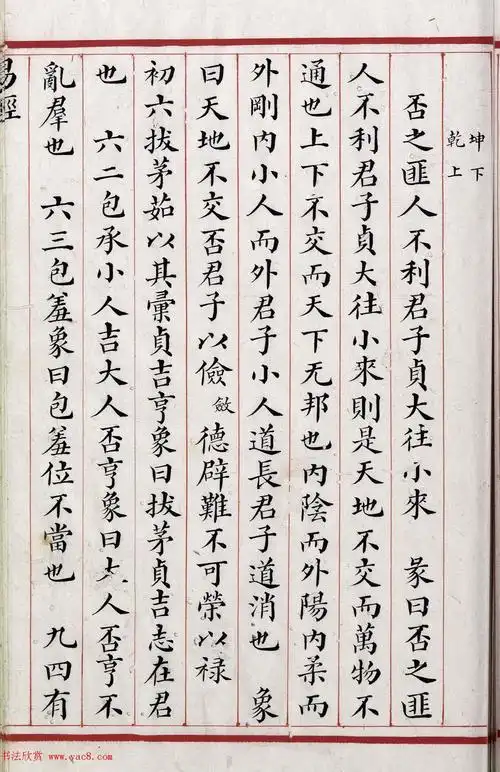 坤下
乾上
否之匪人不利君子貞大往小來　彖曰否之匪
人不利君子貞大往小來則是天地不交而萬物不
通也上下不交而天下无邦也內陰而外陽內柔而
外剛內小人而外君子小人道長君子道消也　象
曰天地不交否君子以儉斂德辟難不可榮以禄
初六拔茅茹以其彙貞吉亨象曰拔茅貞吉志在君
也　六二包承小人吉大人否亨象曰大人否亨不
亂羣也　六三包羞象曰包羞位不當也　九四有
易經
书法欣赏 www.yac8.com